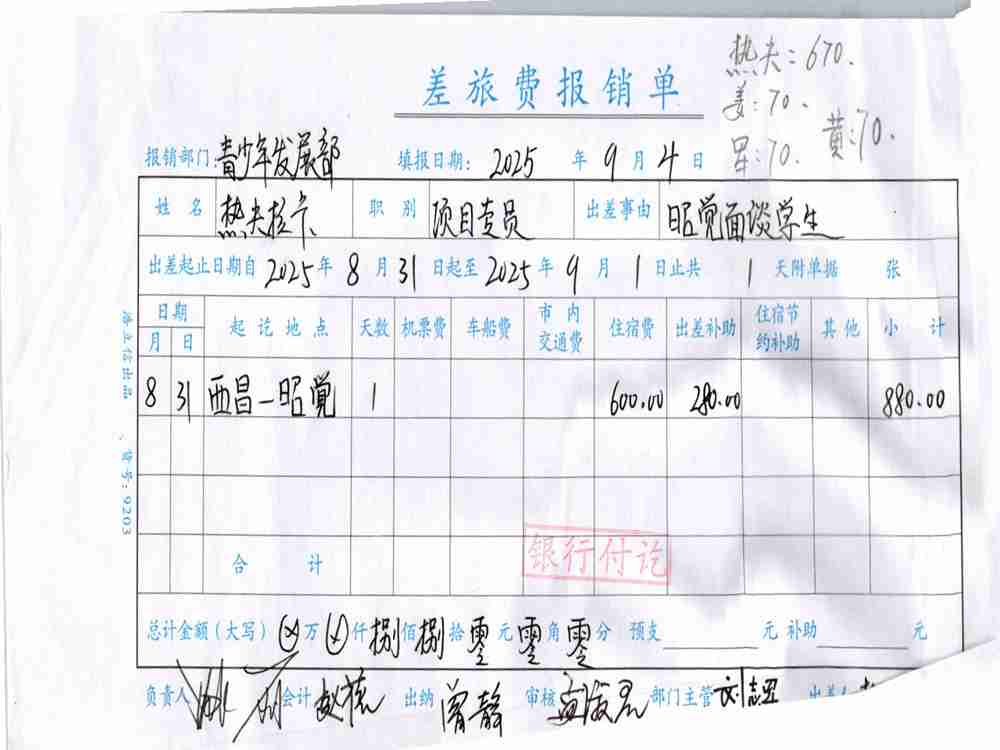 热夫：670.
差旅费报销单
姜：70.
黄：70.
星：70.
报销部门：青少年发展部 填报日期：2025 年 9 月 4 日
姓名 热夫拉卡 职别 项目专员 出差事由 昭觉面谈学生
出差起止日期自 2025 年 8 月 31 日起至 2025 年 9 月 1 日止共 1 天附单据 张
日期 起讫地点 天数 机票费 车船费 市内交通费 住宿费 出差补助 住宿节约补助 其他 小计
月 日
8 31 西昌—昭觉 1 600.00 280.00 880.00
银行付讫
合计
总计金额（大写）⊗万⊗仟捌佰捌拾零元零角零分 预支 元 补助 元
负责人 会计 出纳 曾静 审核 部门主管 刘志星 出差人
货号：9203